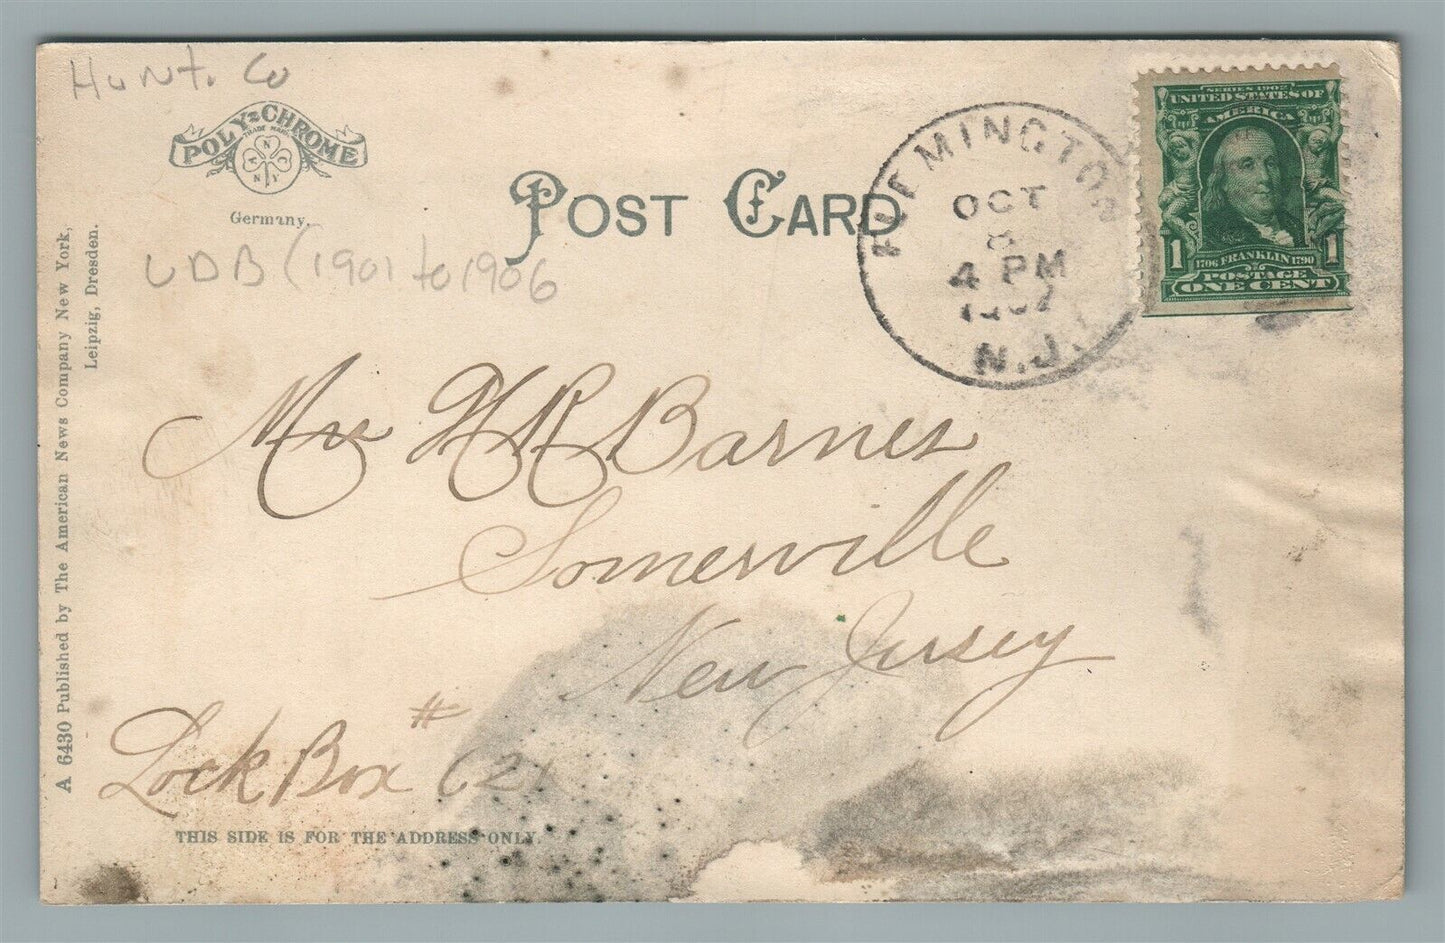 Hunt. Co
POLY-CHROME
TRADE MARK
Germany.
POST CARD
UDB (1901 to 1906
FLEMINGTON
OCT
8
4 PM
1907
N.J.
SERIES 1902
UNITED STATES OF
AMERICA
1706 FRANKLIN 1790
1 1
POSTAGE
ONE CENT
Mr H R Barnes
Somerville
New Jersey
Lock Box # 621
THIS SIDE IS FOR THE ADDRESS ONLY.
A 6430 Published by The American News Company New York,
Leipzig, Dresden.